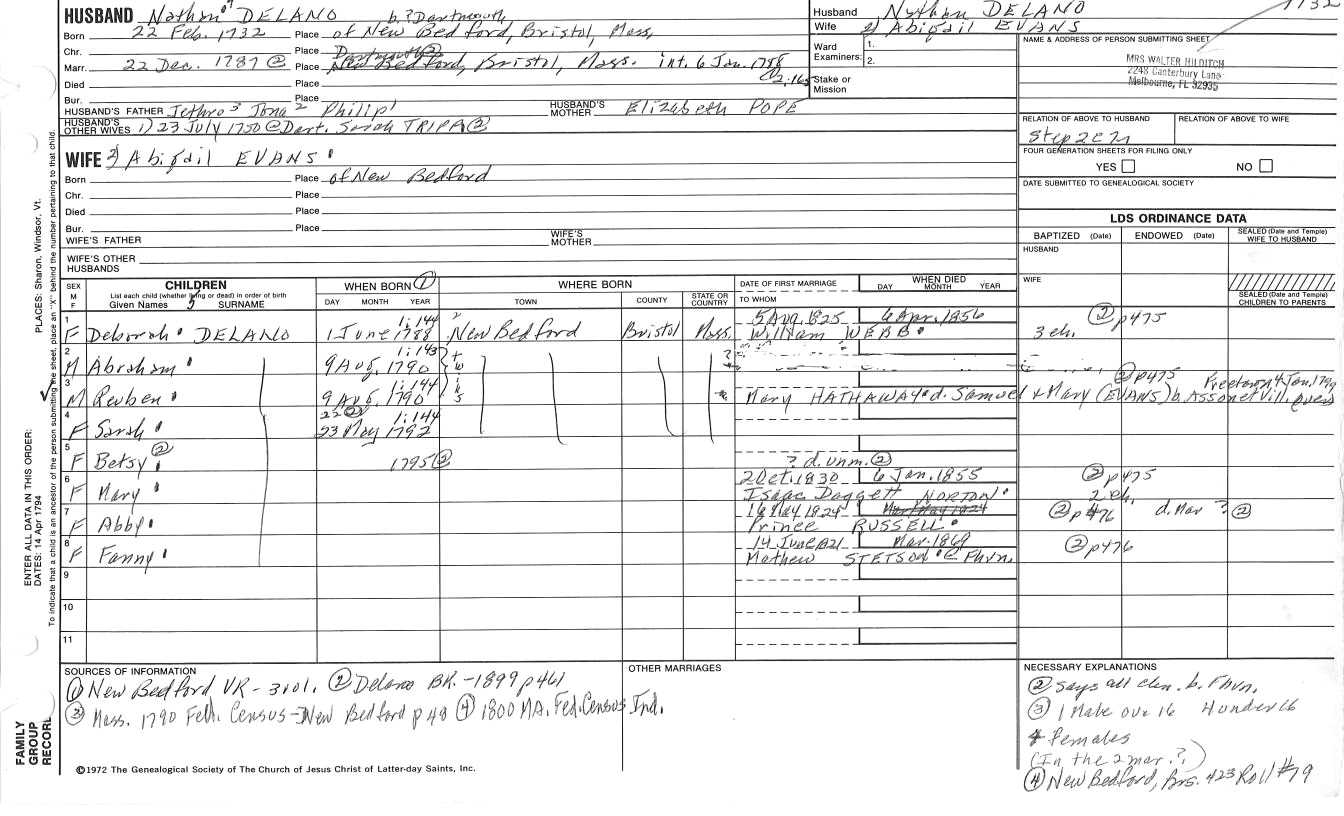 HUSBAND Nathan DELANO b. ? Dartmouth
Born 22 Feb. 1732 Place of New Bedford, Bristol, Mass,
Chr. Place
Marr. 22 Dec. 1787 @ Place New Bedford, Bristol, Mass. int. 6 Jan. 1788
Died Place
Bur. Place
HUSBAND'S FATHER Jethro 3 Jona 2 Philip 1 HUSBAND'S MOTHER Elizabeth POPE
HUSBAND'S OTHER WIVES 1) 23 July 1750 @ Dart. Sarah TRIPP ②
WIFE 2) Abigail EVANS
Born Place of New Bedford
Chr. Place
Died Place
Bur. Place
WIFE'S FATHER WIFE'S MOTHER
WIFE'S OTHER HUSBANDS
Husband Nathan DELANO 1732
Wife 2) Abigail EVANS
Ward Examiners: 1.
2.
Stake or Mission
NAME & ADDRESS OF PERSON SUBMITTING SHEET
MRS WALTER HILDITCH
2248 Canterbury Lane
Melbourne, FL 32935
RELATION OF ABOVE TO HUSBAND RELATION OF ABOVE TO WIFE
Step
FOUR GENERATION SHEETS FOR FILING ONLY
YES NO
DATE SUBMITTED TO GENEALOGICAL SOCIETY
LDS ORDINANCE DATA
BAPTIZED (Date) ENDOWED (Date) SEALED (Date and Temple) WIFE TO HUSBAND
HUSBAND
WIFE
SEALED (Date and Temple) CHILDREN TO PARENTS
SEX M F
CHILDREN
List each child (whether living or dead) in order of birth
Given Names SURNAME
WHEN BORN ①
DAY MONTH YEAR
WHERE BORN
TOWN COUNTY STATE OR COUNTRY
DATE OF FIRST MARRIAGE
TO WHOM
WHEN DIED
DAY MONTH YEAR
1 1:144 5 Aug. 1825 6 Apr. 1856 ② p475
F Deborah DELANO 1 June 1788 New Bedford Bristol Mass. William WEBB 3 ch.
2 1:143
M Abraham 9 Aug. 1790 twins
3 1:144 ② p475 Freetown 4 Jan. 1799
M Reuben 9 Aug. 1790 Mary HATHAWAY d. Samuel + Mary (EVANS) b. Assonet Vill.
4 1:144
F Sarah 23 May 1792
5
F Betsy ② 1795 ② ? d. unm. ②
6 2 Oct. 1830 6 Jan. 1855 ② p475
F Mary Isaac Daggett NORTON 2 ch.
7 16 May 1824 ② p476 d. Mar ? ②
F Abby Prince RUSSELL
8 14 June 1821 Mar. 1869 ② p476
F Fanny Mathew STETSON @ Fhvn.
9
10
11
SOURCES OF INFORMATION
① New Bedford VR - 3 vol. ② Delano BK. - 1899 p461
③ Mass. 1790 Fed. Census - New Bedford p 48 ④ 1800 MA. Fed. Census Ind.
OTHER MARRIAGES
NECESSARY EXPLANATIONS
② Says all chn. b. Fhvn.
③ 1 Male ovr 16 4 under 16
4 females
(In the 2 mar. ?)
④ New Bedford, Brs. 423 Roll #19
©1972 The Genealogical Society of The Church of Jesus Christ of Latter-day Saints, Inc.
FAMILY GROUP RECORD
ENTER ALL DATA IN THIS ORDER:
DATES: 14 Apr 1794
PLACES: Sharon, Windsor, Vt.
To indicate that a child is an ancestor of the person submitting the sheet, place an "X" behind the number pertaining to that child.